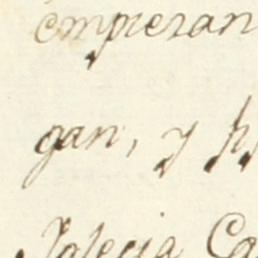 empieran
gan, y h
Iglecia Ca